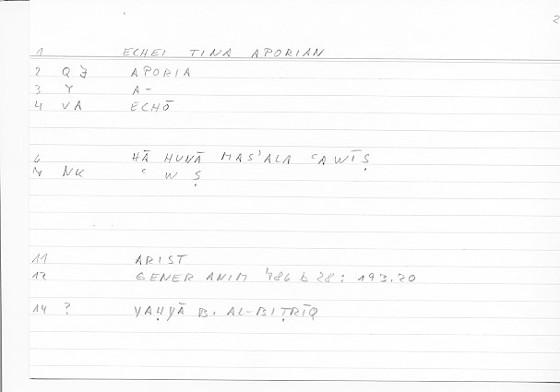 2
1 ECHEI TINA APORIAN
2 Q J APORIA
3 Y A-
4 VA ECHŌ
6 HĀ HUNĀ MAS'ALA ʿAWĪṢ
7 NK ʿ W Ṣ
11 ARIST
12 GENER ANIM 786 b 28 : 193.20
14 ? YAḤYĀ B. AL-BIṬRĪQ